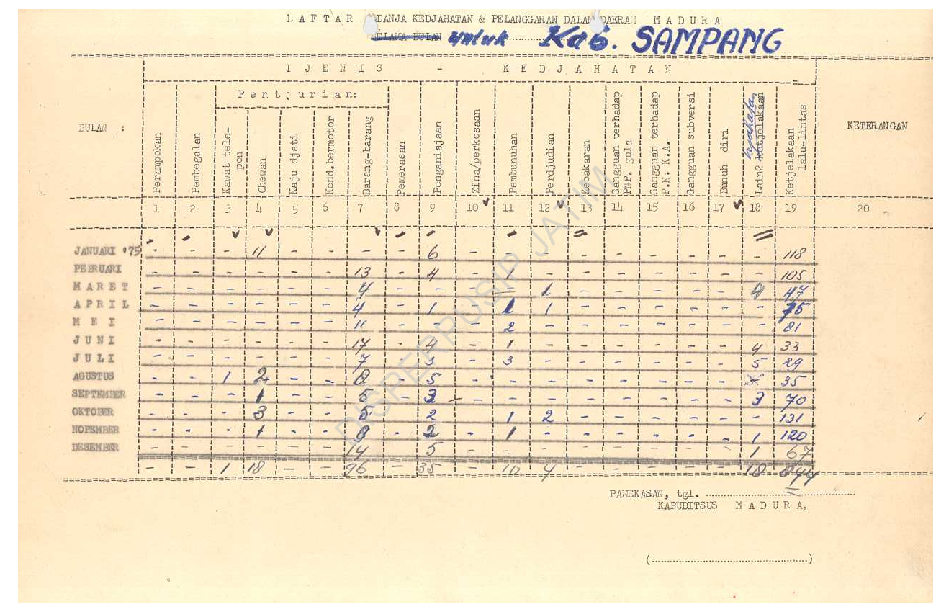 LAFTAR ADANJA KEDJAHATAN & PELANGGARAN DALAM DAERAH MADURA
SELAMA BULAN untuk Kab. SAMPANG
DJENIS - KEDJAHATAN
Pentjurian:
BULAN : Perampokan Pembegalan Kawat tele-pon Chewan Kaju djati Kend.bermotor Barang-barang Pemerasan Penganiajaan Zina/perkosaan Pembunuhan Perdjudian Kebakaran Gangguan terhadap PNP. gula Gangguan terhadap P.N. K.A. Gangguan subversi Bunuh diri Lain2 Ketjelakaan lalu-lintas KETERANGAN
1 2 3 4 5 6 7 8 9 10 11 12 13 14 15 16 17 18 19 20
JANUARI '75 - - - 11 - - - - 6 - - - - - - - - - 118
PEBRUARI - - - - - - 13 - 4 - - - - - - - - - 105
MARET - - - - - - 4 - - - - 1 - - - - - 47
APRIL - - - - - - 4 - 1 - 1 1 - - - - - -
MEI - - - - - - 11 - - - 2 - - - - - - - 81
JUNI - - - - - - 17 - 4 - 1 - - - - - - 4 33
JULI - - - - - - 7 - 5 - 3 - - - - - - 5 29
AGUSTUS - - 1 2 - - 8 - 5 - - - - - - - - 35
SEPTEMBER - - - 1 - - 5 - 3 - - - - - - - - 3 70
OKTOBER - - - 3 - - 5 - 2 - 1 2 - - - - - - 131
NOPEMBER - - - 1 - - - 2 - 1 - - - - - - 1 120
DESEMBER - - - - - - 14 - 5 - - - - - - - - 1 67
- - 1 18 - - 96 - 35 - 10 4 - - - - - 18
PAMEKASAN, tgl. ..............................
KABUDITSUS MADURA,
(..............................)